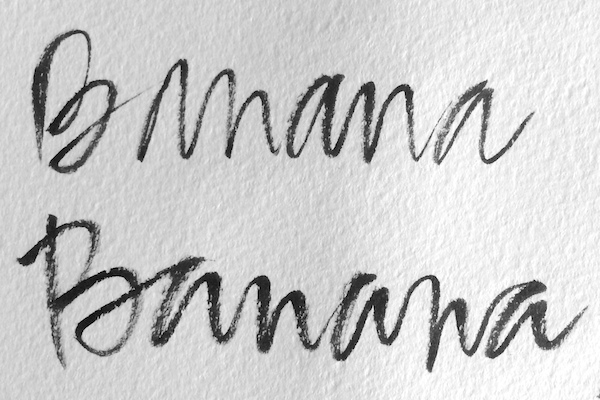 Banana
Banana